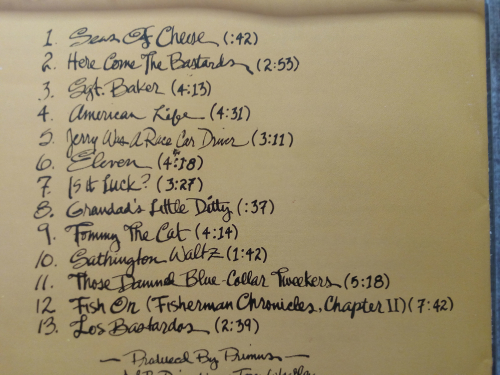 1. Seas Of Cheese (:42)
2. Here Come The Bastards (2:53)
3. Sgt. Baker (4:13)
4. American Life (4:31)
5. Jerry Was A Race Car Driver (3:11)
6. Eleven (4:18)
7. Is it Luck? (3:27)
8. Grandad's Little Ditty (:37)
9. Tommy The Cat (4:14)
10. Sathington Waltz (1:42)
11. Those Damned Blue-Collar Tweekers (5:18)
12. Fish On (Fisherman Chronicles, Chapter II) (7:42)
13. Los Bastardos (2:39)
— Produced By Primus —